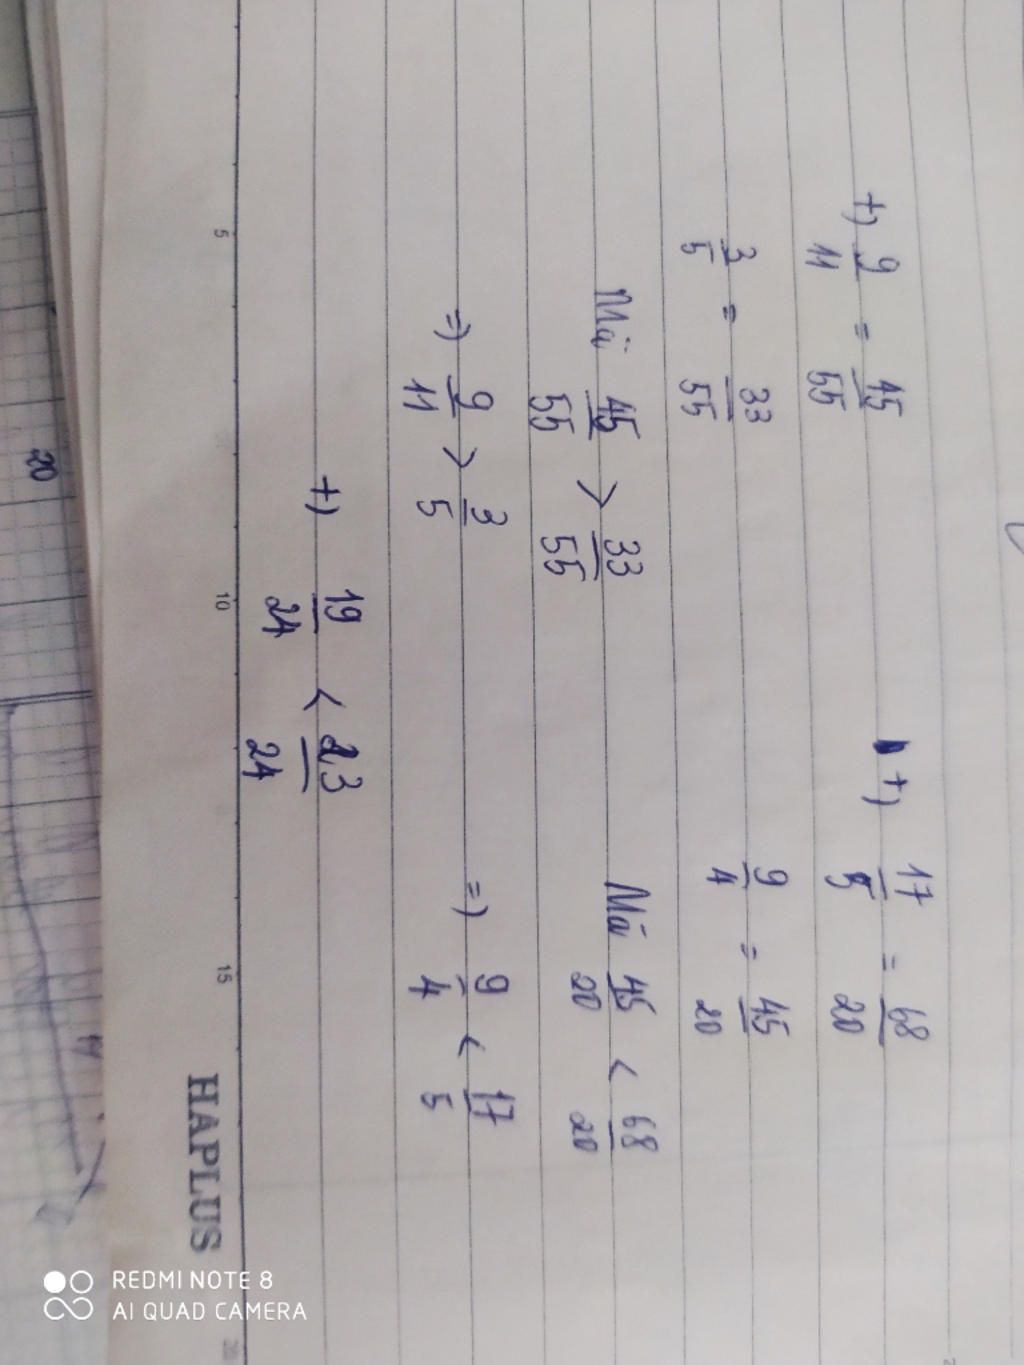 +) 9/11 = 45/55
3/5 = 33/55
Mà 45/55 > 33/55
=) 9/11 > 3/5
+) 17/5 = 68/20
9/4 = 45/20
Mà 45/20 < 68/20
=) 9/4 < 17/5
+) 19/24 < 23/24
5 10 15 20
HAPLUS
20
REDMI NOTE 8
AI QUAD CAMERA